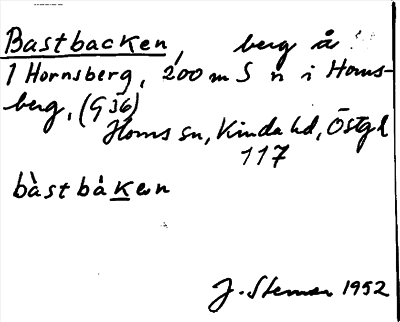 Bastbacken, berg å
1 Hornsberg, 200 m S n i Horns-
berg, (G 36)
Horns sn, Kinda hd, Östgl
117
bàstbàken
J. Steman 1952